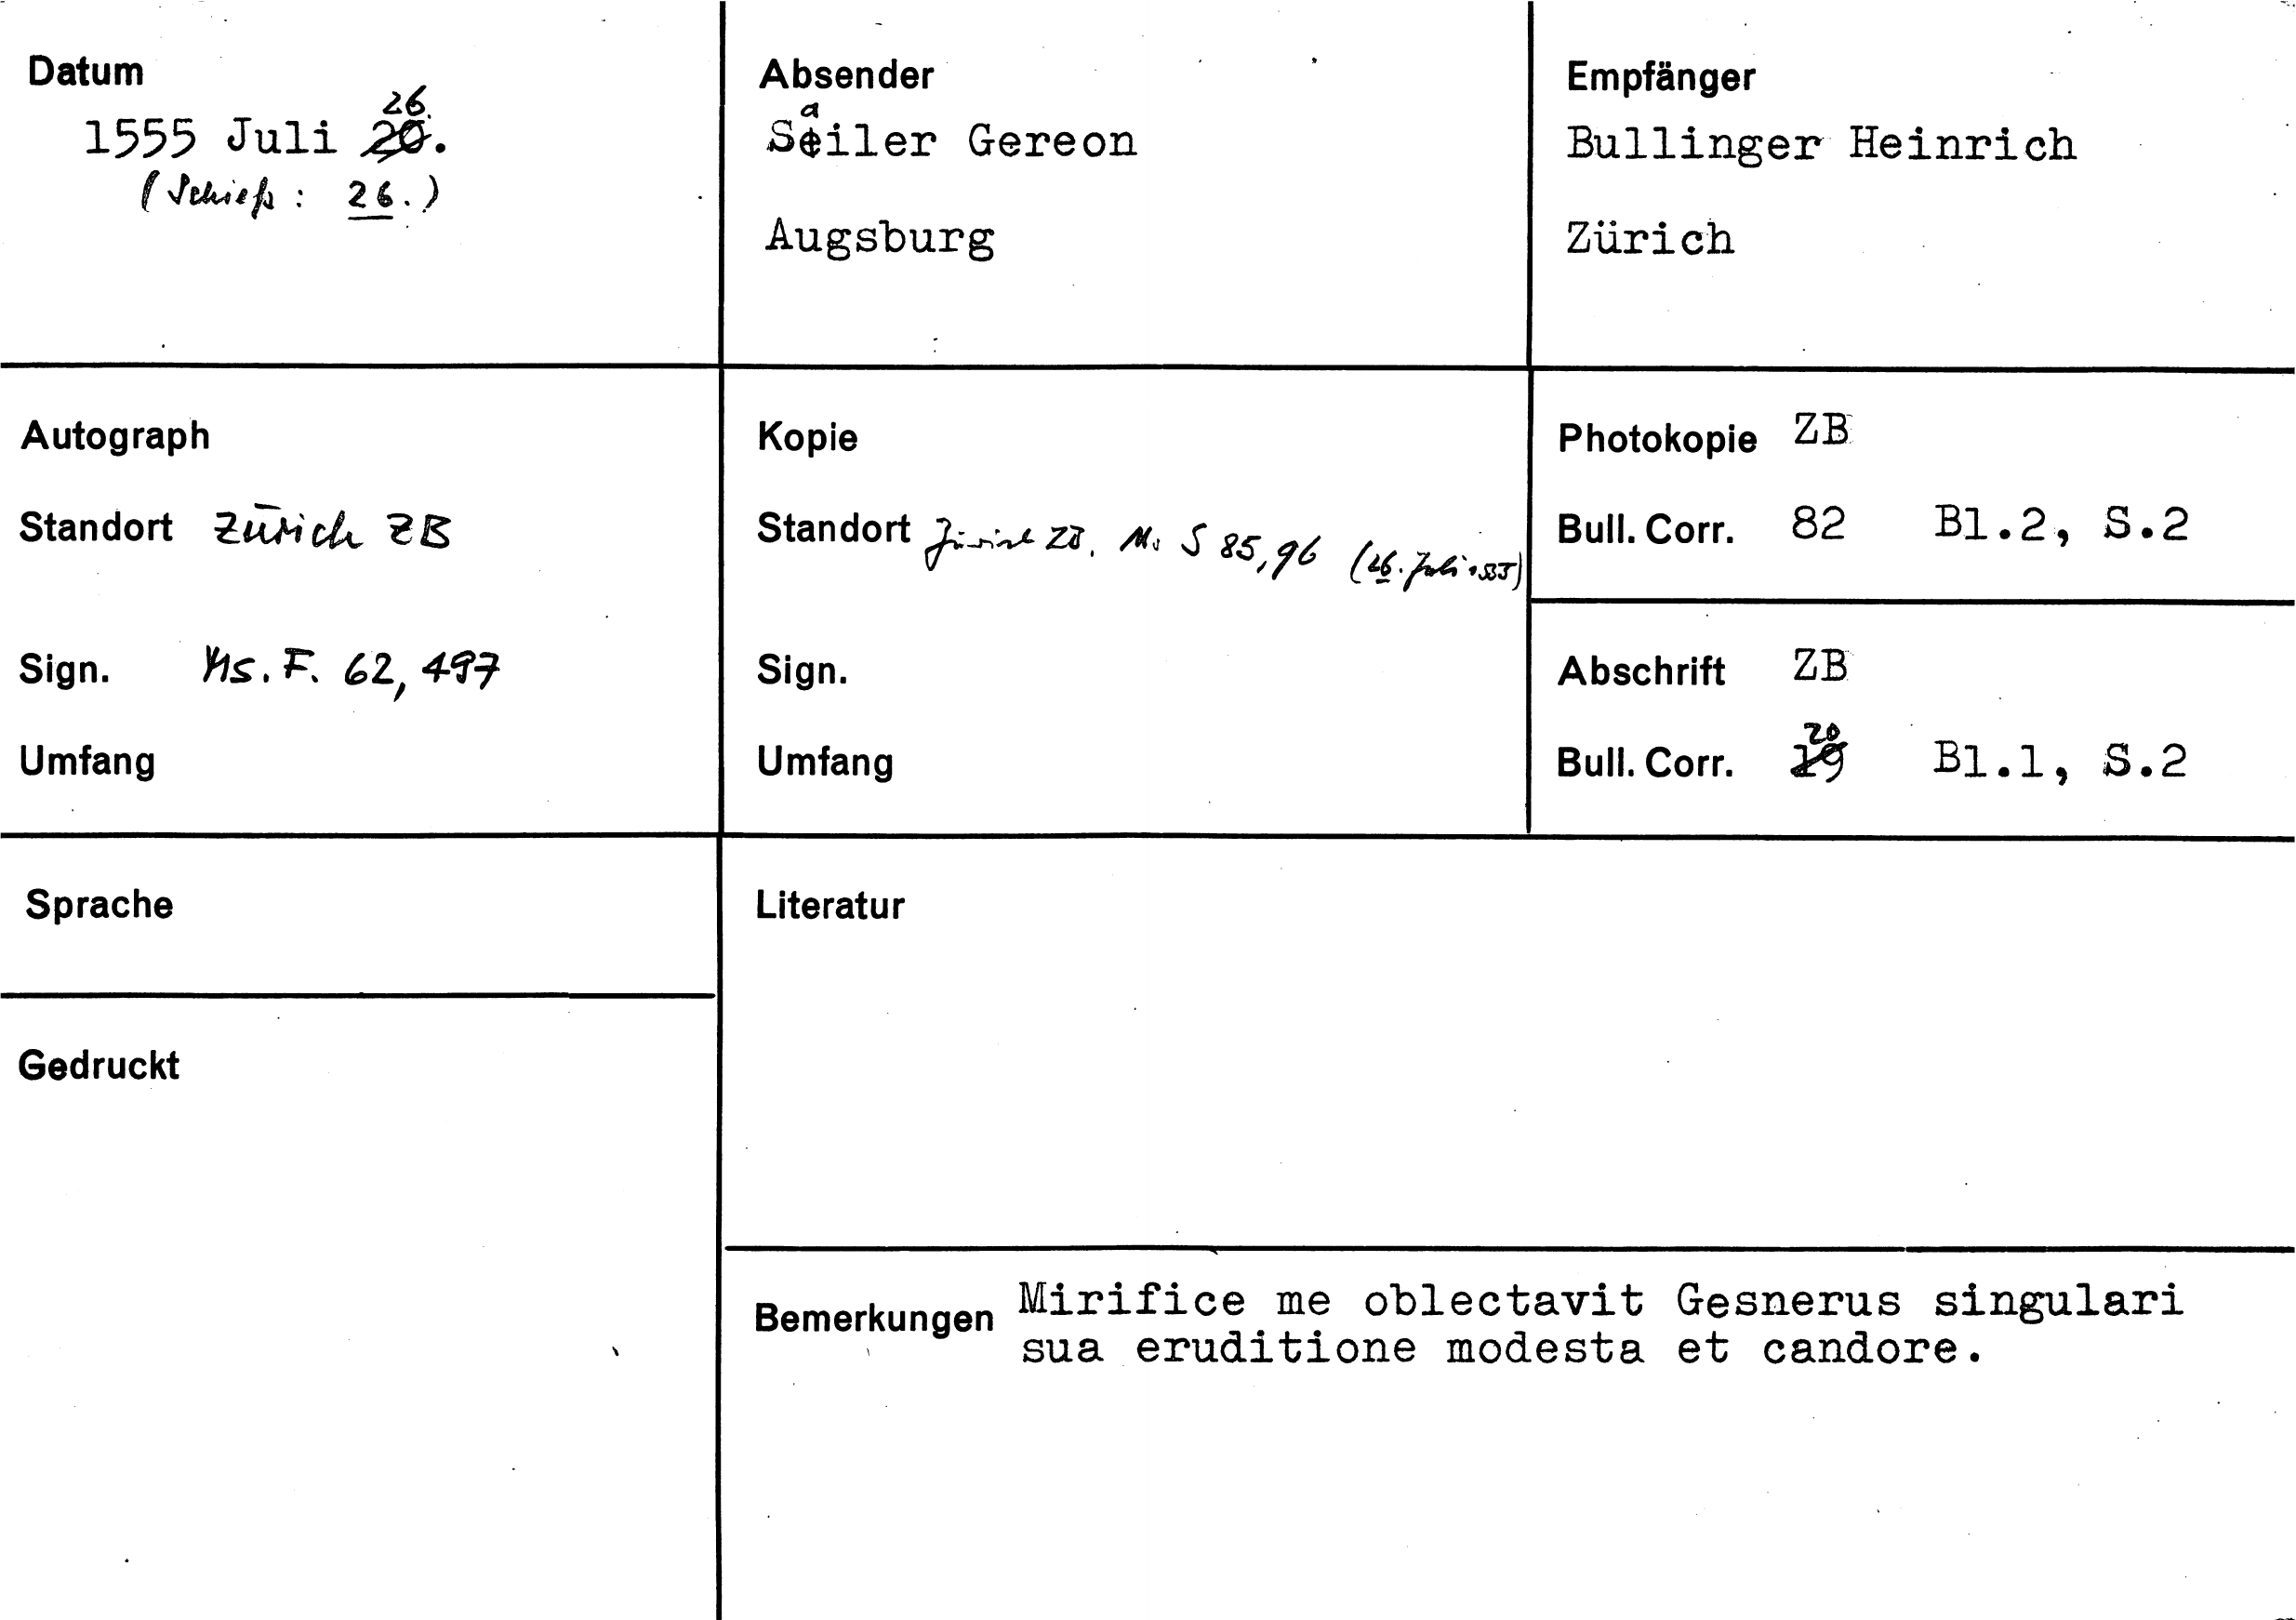 Datum
26.
1555 Juli 20.
(Schieß: 26.)
Absender
a
Seiler Gereon
Augsburg
Empfänger
Bullinger Heinrich
Zürich
Autograph
Standort Zürich ZB
Sign. Ms. F. 62, 497
Umfang
Kopie
Standort Zürich ZB. Ms S 85, 96 (26. Juli 1555)
Sign.
Umfang
Photokopie ZB
Bull. Corr. 82 Bl.2, S.2
Abschrift ZB
20
Bull. Corr. 19 Bl.1, S.2
Sprache
Gedruckt
Literatur
Bemerkungen Mirifice me oblectavit Gesnerus singulari
sua eruditione modesta et candore.